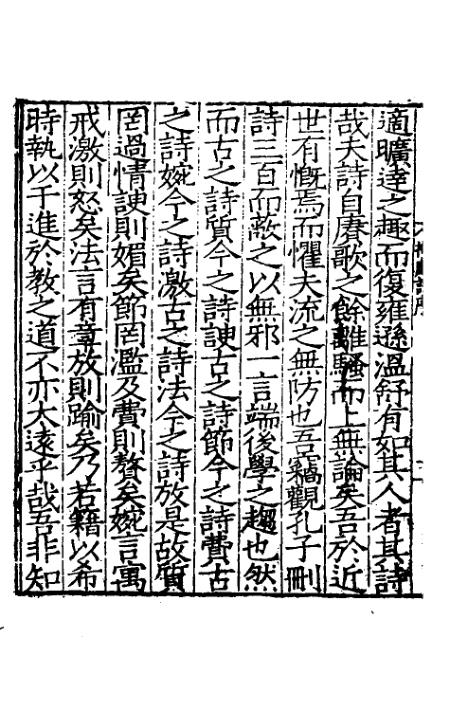 適曠達之趣而復雍遜溫舒有如其人者其詩
哉夫詩自賡歌之餘離騷而上無論矣吾於近
世有慨焉而懼夫流之無防也吾竊觀孔子刪
詩三百而蔽之以無邪一言端後學之趨也然
而古之詩質今之詩諛古之詩節今之詩費古
之詩婉今之詩激古之詩法今之詩放是故質
罔過情諛則媚矣節罔濫及費則贅矣婉言寓
戒激則怒矣法言有章放則踰矣乃若籍以希
時執以干進於教之道不亦大遠乎哉吾非知